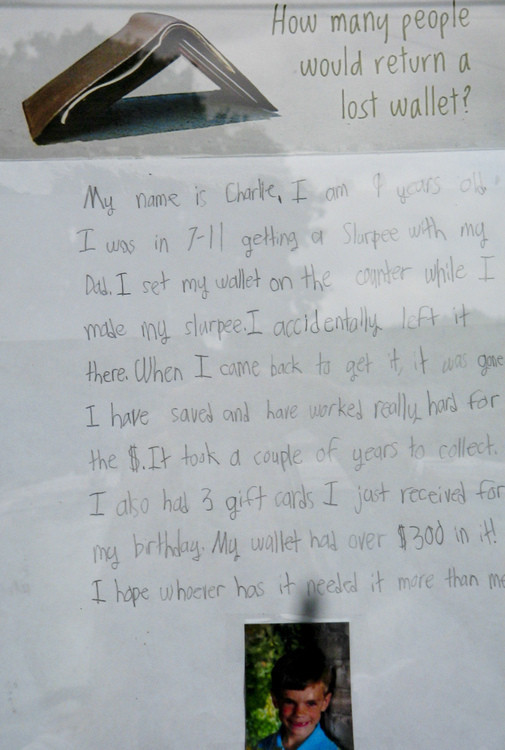 How many people
would return a
lost wallet?
My name is Charlie, I am 9 years old.
I was in 7-11 getting a Slurpee with my
Dad. I set my wallet on the counter while I
made my slurpee. I accidentally left it
there. When I came back to get it, it was gone
I have saved and have worked really hard for
the $. It took a couple of years to collect.
I also had 3 gift cards I just received for
my birthday. My wallet had over $300 in it!
I hope whoever has it needed it more than me